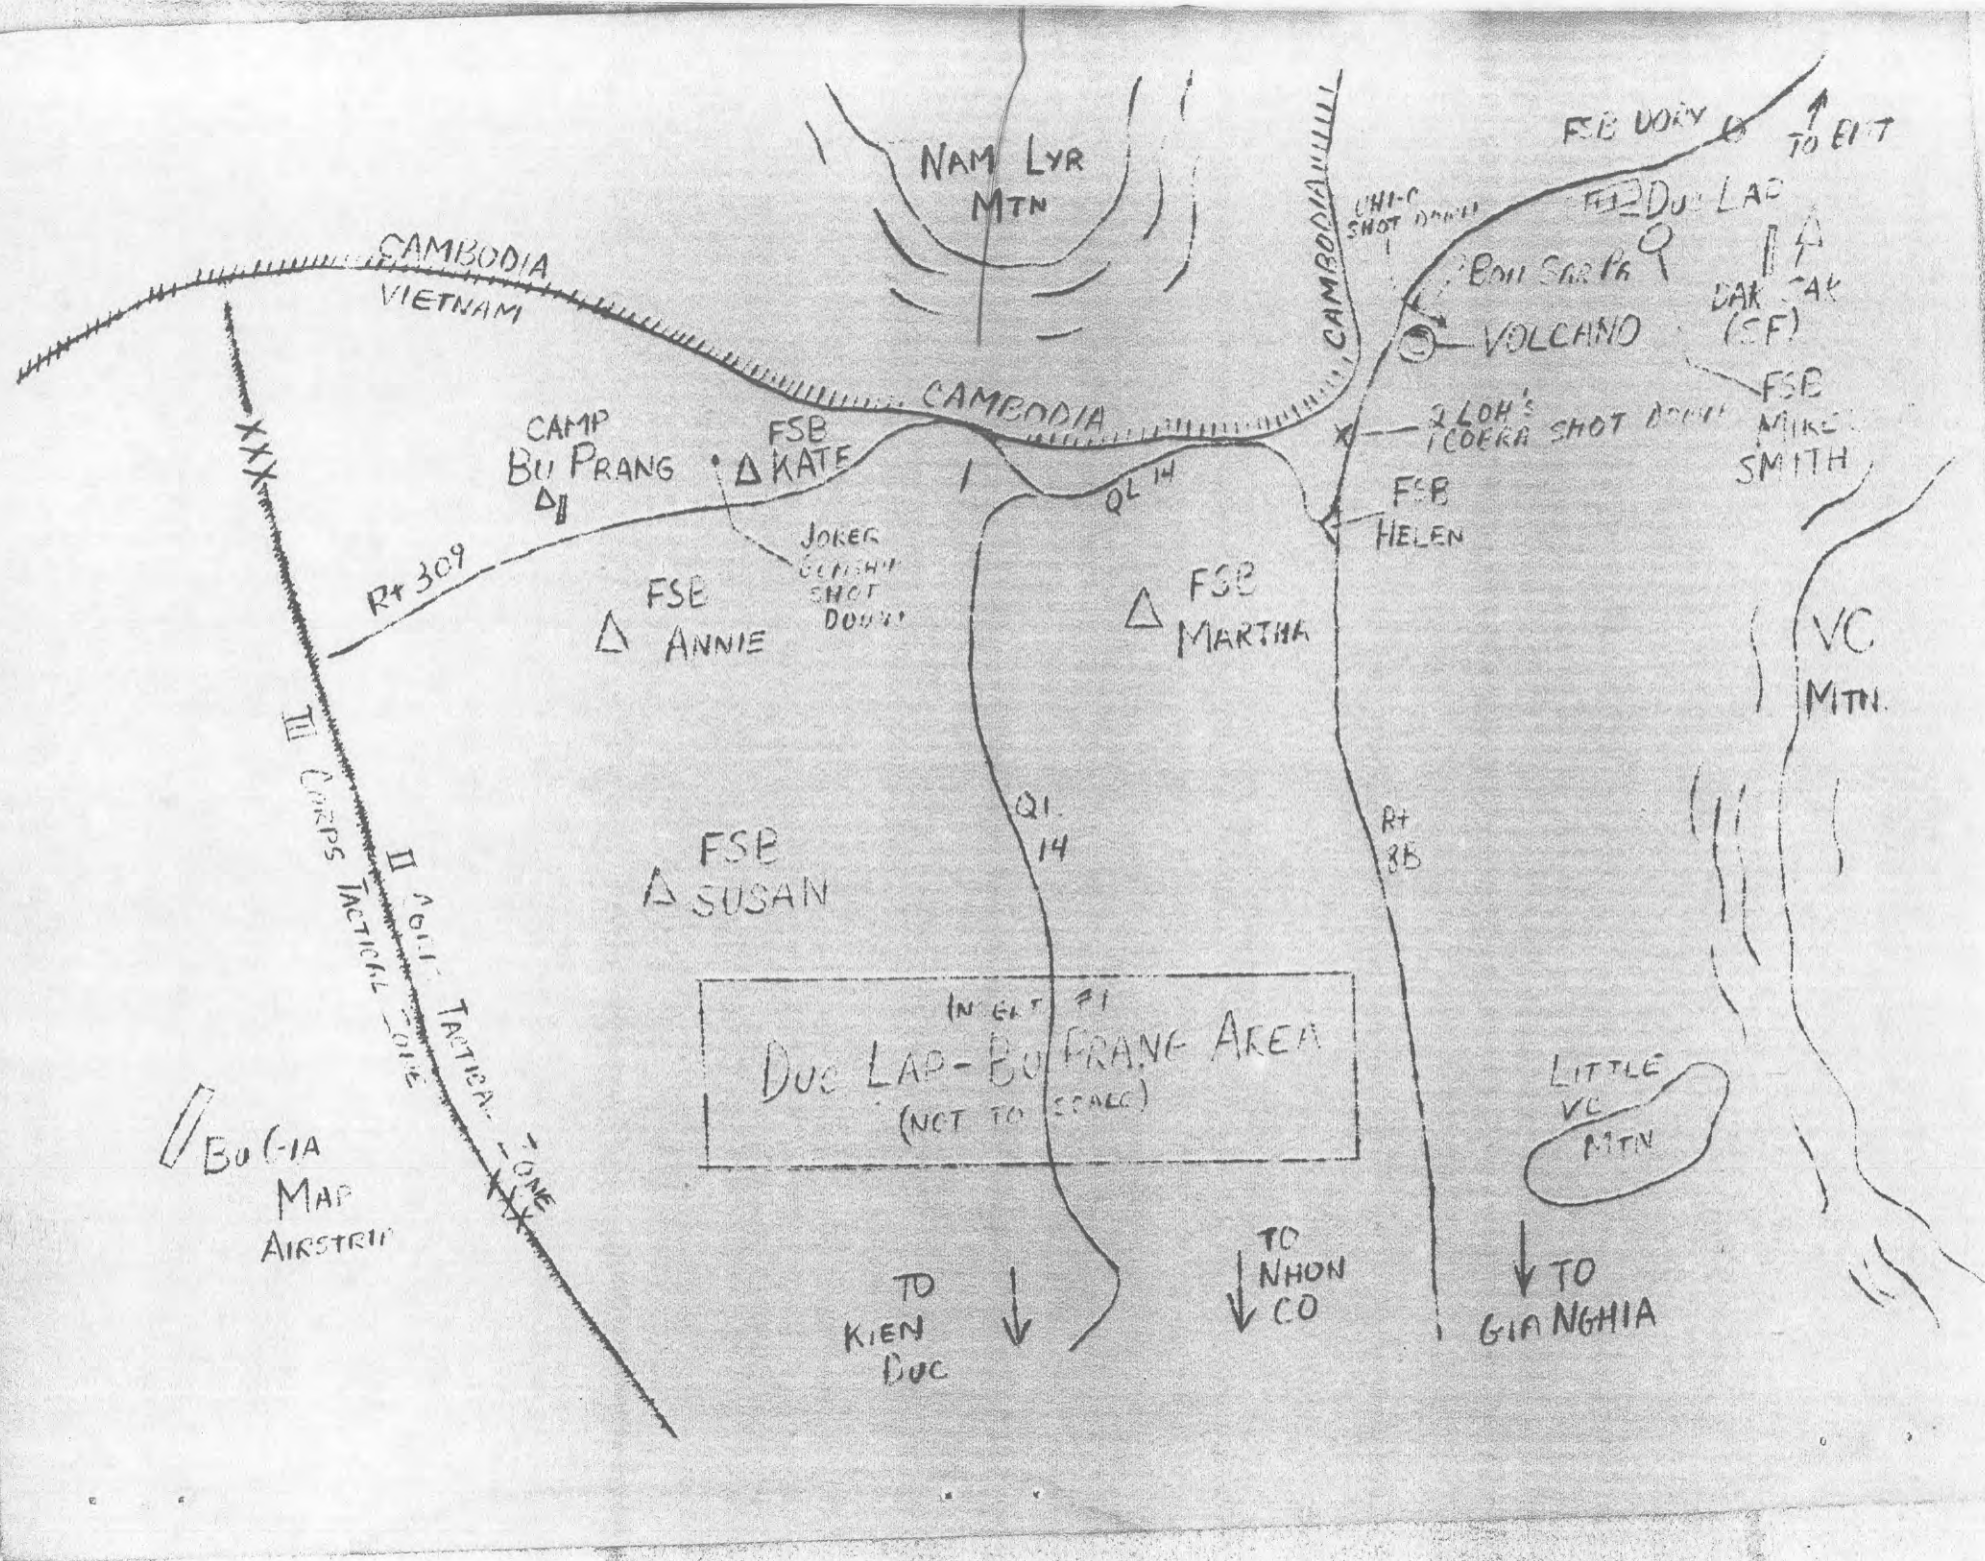 NAM LYR
MTN
CAMBODIA
VIETNAM
CAMBODIA
CAMBODIA
FSB
TO
SHOT DOWN
DUC LAP
BON SAR PA
VOLCANO
DAK SAK
(SF)
FSB
MIKE
SMITH
2 LOH'S
1 COBRA SHOT DOWN
CAMP
BU PRANG
FSB
KATE
QL 14
FSB
HELEN
Rt 309
JOKER
SHOT
DOWN
FSB
ANNIE
FSB
MARTHA
VC
MTN.
III CORPS TACTICAL ZONE
II TACTICAL ZONE
XXX
XXX
QL
14
Rt
8B
FSB
SUSAN
INSERT #1
DUC LAP-BU PRANG AREA
(NOT TO SCALE)
LITTLE
VC
MTN
BU GIA
MAP
AIRSTRIP
TO
KIEN
DUC
TO
NHON
CO
TO
GIA NGHIA